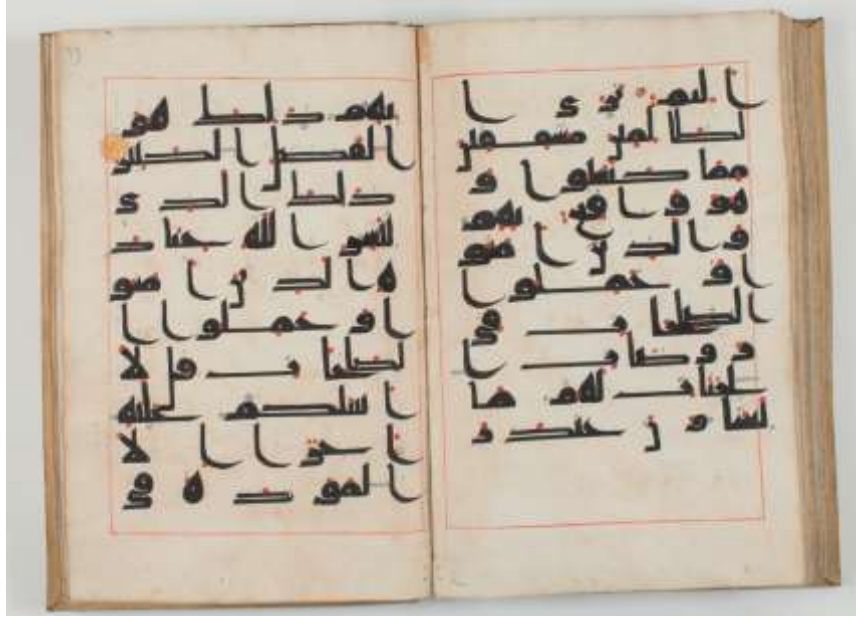 اليم ترى ا
لظلمين مشفقين
مما كسبوا و
هو واقع بهم
والذين امنو
ا وعملوا
الصلحت في
روضات ا
لجنات لهم ما
يشاون عند ر
بهم ذلك هو
الفضل الكبير
ذلك الذي
يبشر الله عباد
ه الذين امنو
ا وعملوا ا
لصلحت قل لا
اسلكم عليه
اجرا الا
المودة في